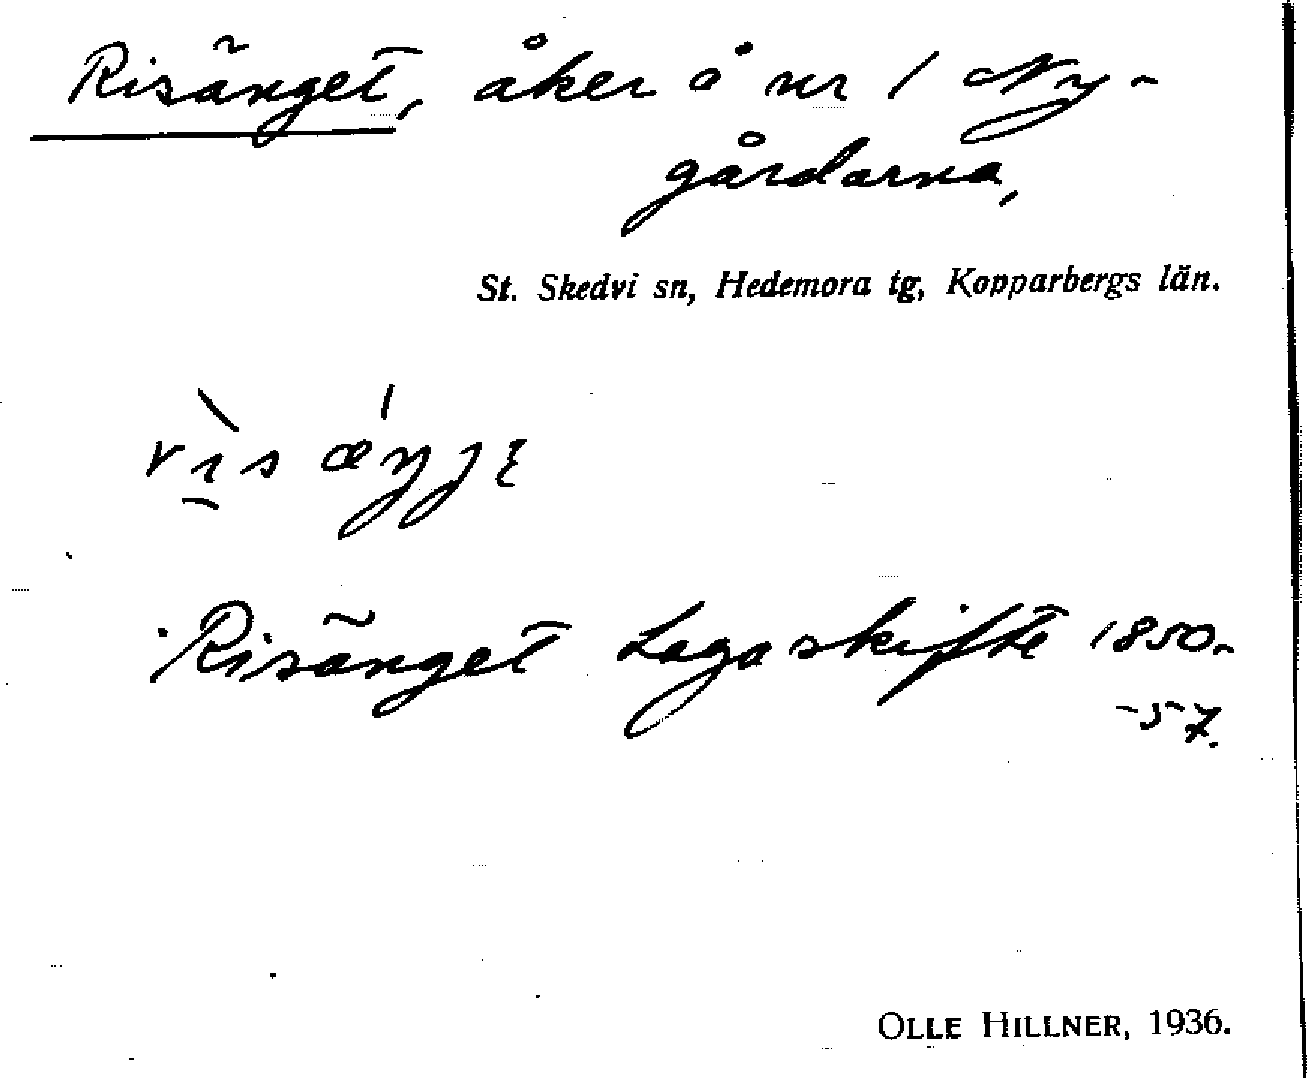 Risänget, åker å nr 1 Ny-
gårdarna,
St. Skedvi sn, Hedemora tg, Kopparbergs län.
Risänget Lagaskifte 1850-
-57.
OLLE HILLNER, 1936.